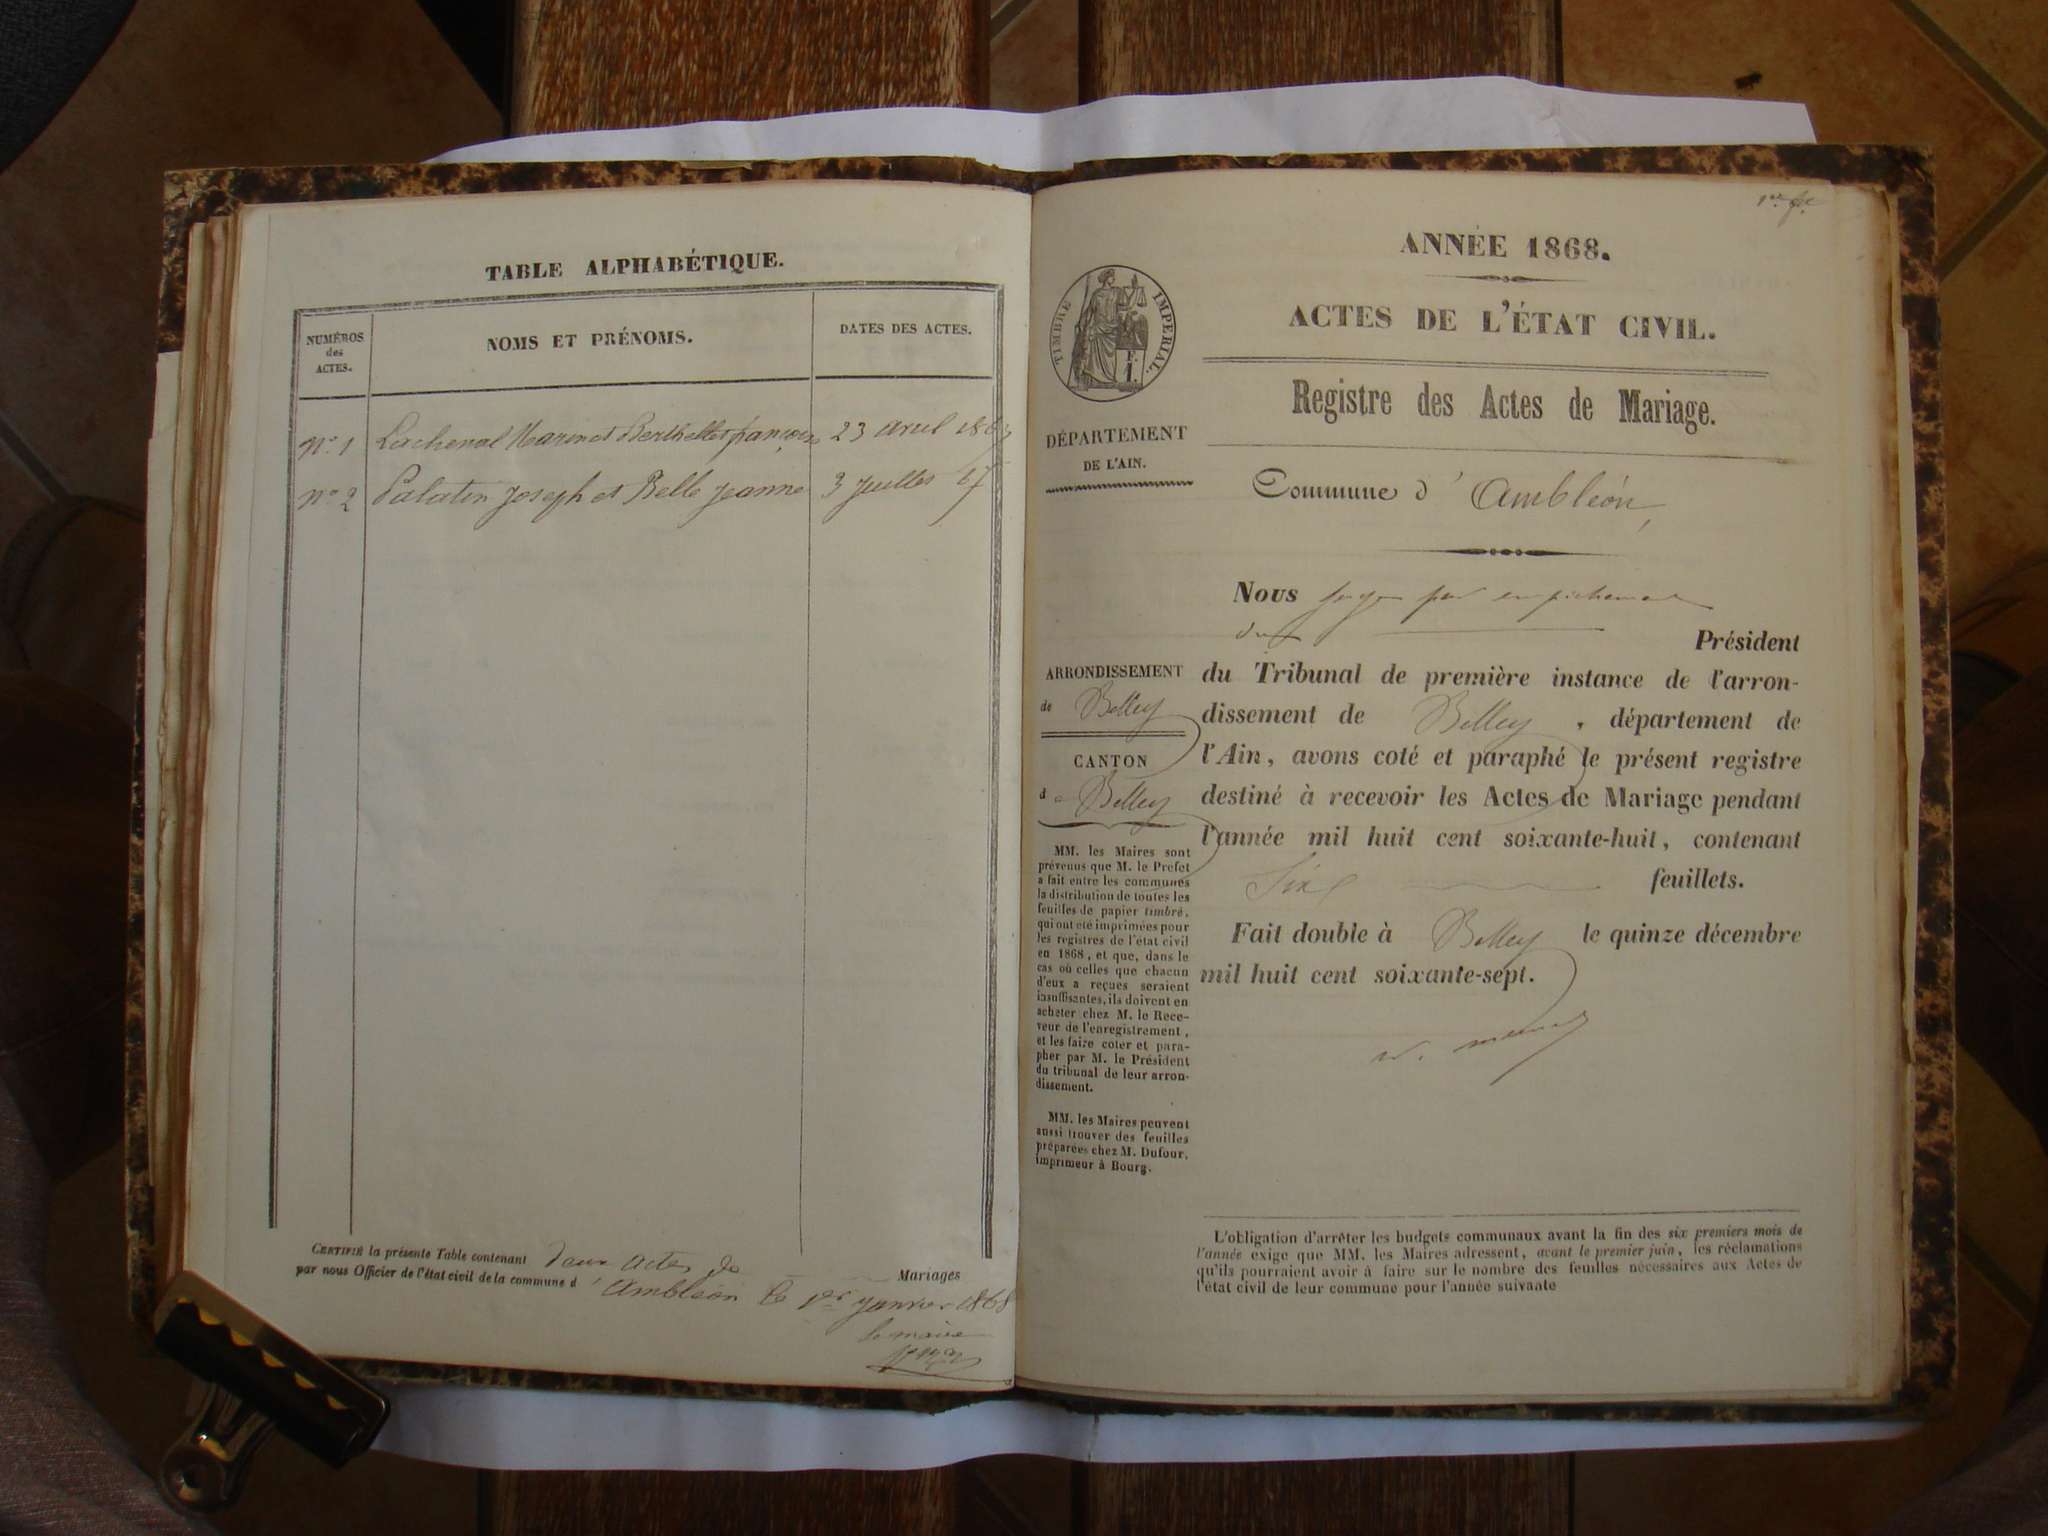 TABLE ALPHABÉTIQUE.
NUMÉROS
des
ACTES.
NOMS ET PRÉNOMS.
DATES DES ACTES.
N° 1 Lachenal Marin et Berthellet françoise 23 avril 1867
N° 2 Palatin Joseph et Belle Jeanne 3 Juillet 67
CERTIFIÉ la présente Table contenant deux actes de Mariages
par nous Officier de l'état civil de la commune d'Ambléon le 1er janvier 1868
le maire
1re fle
ANNÉE 1868.
ACTES DE L'ÉTAT CIVIL.
TIMBRE IMPERIAL.
F.
1.
Registre des Actes de Mariage.
DÉPARTEMENT
DE L'AIN.
Commune d'Ambléon,
Nous juge par empêchement
du
Président
du Tribunal de première instance de l'arron-
dissement de Belley, département de
l'Ain, avons coté et paraphé le présent registre
destiné à recevoir les Actes de Mariage pendant
l'année mil huit cent soixante-huit, contenant
Six feuillets.
Fait double à Belley le quinze décembre
mil huit cent soixante-sept.
ARRONDISSEMENT
de Belley
CANTON
de Belley
MM. les Maires sont
prévenus que M. le Prefet
a fait entre les communes
la distribution de toutes les
feuilles de papier timbré,
qui ont été imprimées pour
les registres de l'état civil
en 1868, et que, dans le
cas où celles que chacun
d'eux a reçues seraient
insuffisantes, ils doivent en
acheter chez M. le Rece-
veur de l'enregistrement,
et les faire coter et para-
pher par M. le Président
du tribunal de leur arron-
dissement.
MM. les Maires peuvent
aussi trouver des feuilles
préparées chez M. Dufour,
imprimeur à Bourg.
L'obligation d'arrêter les budgets communaux avant la fin des six premiers mois de
l'année exige que MM. les Maires adressent, avant le premier juin, les réclamations
qu'ils pourraient avoir à faire sur le nombre des feuilles nécessaires aux Actes de
l'état civil de leur commune pour l'année suivante